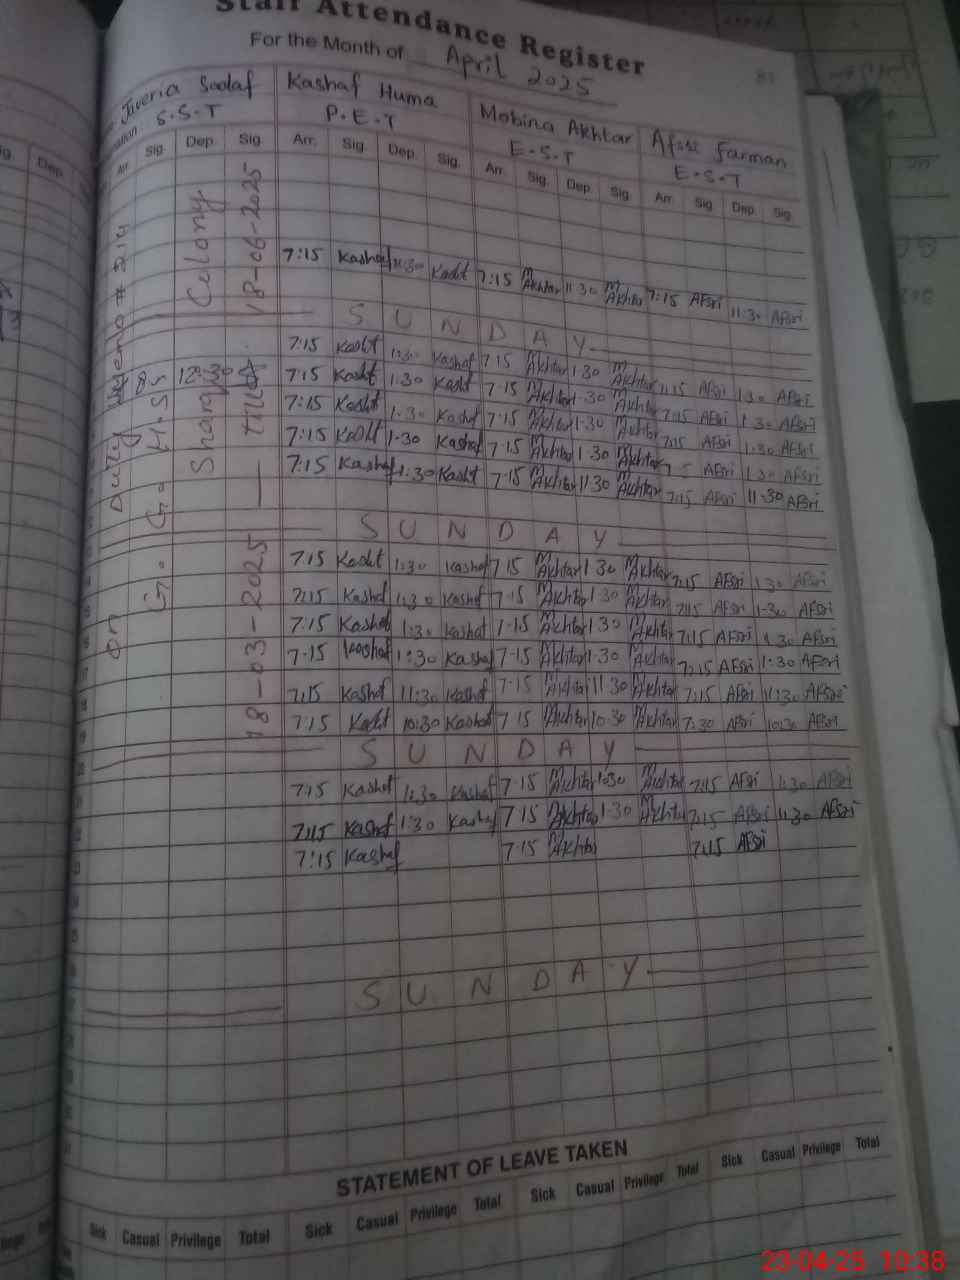 Staff Attendance Register
For the Month of April 2025
81
Juveria Sadaf Kashaf Huma Mobina Akhtar Afsri Farman
S.S.T P.E.T E.S.T E.S.T
Arr. Sig. Dep. Sig. Arr. Sig. Dep. Sig. Arr. Sig. Dep. Sig. Arr. Sig. Dep. Sig.
on Duty
G. G. H. S
Colony
18-03-2025 — 18-06-2025
12:30
7:15 Kashaf 11:30 Kashf 7:15 M Akhtar 11:30 M Akhtar 7:15 AFsri 11:30 AFsri
S U N D A Y
7:15 Kashf 1:30 Kashaf 7:15 M Akhtar 1:30 M Akhtar 7:15 AFsri 1:30 AFsri
7:15 Kashf 1:30 Kashf 7:15 M Akhtar 1:30 M Akhtar 7:15 AFsri 1:30 AFsri
7:15 Kashf 1:30 Kashaf 7:15 M Akhtar 1:30 M Akhtar 7:15 AFsri 1:30 AFsri
7:15 Kashf 1:30 Kashaf 7:15 M Akhtar 1:30 M Akhtar AFsri 1:30 AFsri
7:15 Kashaf 11:30 Kashf 7:15 M Akhtar 11:30 M Akhtar 7:15 AFsri 11:30 AFsri
S U N D A Y
7:15 Kashf 1:30 Kashaf 7:15 M Akhtar 1:30 M Akhtar 7:15 AFsri 1:30 AFsri
7:15 Kashaf 1:30 Kashaf 7:15 M Akhtar 1:30 M Akhtar 7:15 AFsri 1:30 AFsri
7:15 Kashaf 1:30 Kashaf 7:15 M Akhtar 1:30 M Akhtar 7:15 AFsri 1:30 AFsri
7:15 Kashaf 1:30 Kashaf 7:15 M Akhtar 1:30 M Akhtar 7:15 AFsri 1:30 AFsri
7:15 Kashaf 11:30 Kashaf 7:15 M Akhtar 11:30 M Akhtar 7:15 AFsri 11:30 AFsri
7:15 Kashf 10:30 Kashaf 7:15 M Akhtar 10:30 M Akhtar 7:30 AFsri 10:30 AFsri
S U N D A Y
7:15 Kashaf 1:30 Kashaf 7:15 M Akhtar 1:30 M Akhtar 7:15 AFsri 1:30 AFsri
7:15 Kashaf 1:30 Kashaf 7:15 M Akhtar 1:30 M Akhtar 7:15 AFsri 1:30 AFsri
7:15 Kashaf 7:15 M Akhtar 7:15 AFsri
S U N D A Y
STATEMENT OF LEAVE TAKEN
Sick Casual Privilege Total Sick Casual Privilege Total Sick Casual Privilege Total Sick Casual Privilege Total
23-04-25 10:38